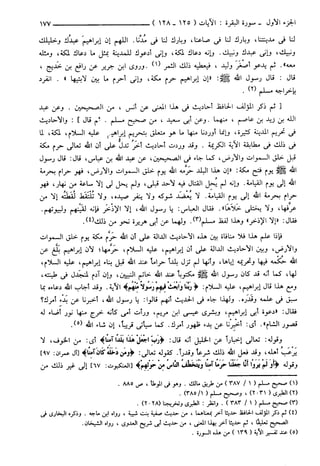 الجزء الأول - سورة البقرة : الآيات ( ١٢٥ - ١٢٨ )
١٧٧
لنا في مدينتنا، وبارك لنا في صاعنا، وبارك لنا في مُدِّنا. اللهم إن إبراهيم عبدك وخليلك
ونبيك، وإني عبدك ونبيك. وإنه دعاك لمكة، وإني أدعوك للمدينة بمثل ما دعاك لمكة، ومثله
معه». ثم يدعو أصغرَ وليد ، فيعطيه ذلك الثمر (١) . وروى ابن جرير عن رافع بن خديج ،
قال : قال رسول الله ﷺ : «إن إبراهيم حرم مكة، وإني أحرم ما بين لابتيها » . انفرد
بإخراجه مسلم (٢) .
[ ثم ذكر المؤلف الحافظ أحاديث في هذا المعنى عن أنس ، من الصحيحين . وعن عبد
الله بن زيد بن عاصم ، منهما. وعن أبي سعيد ، من صحيح مسلم . ثم قال ] : والأحاديث
في تحريم المدينة كثيرة، وإنما أوردنا منها ما هو متعلق بتحريم إبراهيم عليه السلام، لمكة، لما
في ذلك في مطابقة الآية الكريمة . وقد وردت أحاديث أُخر تدلّ على أن الله تعالى حرم مكة
قبل خلق السموات والأرض، كما جاء في الصحيحين، عن عبد الله بن عباس، قال: قال رسول
الله ﷺ يوم فتح مكة: «إن هذا البلد حرَّمه الله يوم خلق السموات والأرض، فهو حرام بحرمة
الله إلى يوم القيامة. وإنه لم يَحِل القتال فيه لأحد قبلي، ولم يحل لي إلا ساعة من نهار، فهو
حرام بحرمة الله إلى يوم القيامة. لا يُعضَد شوكه ولا ينفر صيده، ولا تُلتقط لُقَطته إلا من
عرفها، ولا يختلى خَلاها». فقال العباس: يا رسول الله، إلا الإذخر فإنه لقَيْنهم ولبيوتهم.
فقال: «إلا الإذخر» وهذا لفظ مسلم(٣). ولهما عن أبي هريرة نحو من ذلك(٤).
فإذا علم هذا فلا منافاة بين هذه الأحاديث الدالة على أن الله حرّم مكة يوم خلق السموات
والأرض، وبين الأحاديث الدالة على أن إبراهيم، عليه السلام، حرّمها، لأن إبراهيم بلّغ عن
الله حُكمه فيها وتحريمه إياها، وأنها لم تزل بلداً حراماً عند الله قبل بناء إبراهيم، عليه السلام،
لها، كما أنه قد كان رسول الله ﷺ مكتوباً عند الله خاتم النبيين، وإن آدم لمنجدل في طينته،
ومع هذا قال إبراهيم، عليه السلام: ﴿رَبَّنَا وَابْعَثْ فِيهِمْ رَسُولًا مِّنْهُمْ﴾ الآية. وقد أجاب الله دعاءه بما
سبق في علمه وقدَره. ولهذا جاء في الحديث أنهم قالوا: يا رسول الله، أخبرنا عن بَدْء أمرك؟
فقال: «دعوة أبي إبراهيم، وبشرى عيسى ابن مريم، ورأت أمي كأنه خرج منها نور أضاءت له
قصور الشام». أي: أخبرنا عن بدء ظهور أمرك. كما سيأتي قريباً، إن شاء الله (٥).
وقوله: تعالى إخباراً عن الخليل أنه قال: ﴿رَبِّ اجْعَلْ هَذَا بَلَدًا آمِنًا﴾ أي: من الخوف، لا
يَرْعَب أهله، وقد فعل الله ذلك شرعاً وقدراً. كقوله تعالى: ﴿وَمَن دَخَلَهُ كَانَ آمِنًا﴾ [آل عمران: ٩٧]
وقوله ﴿أَوَلَمْ يَرَوْا أَنَّا جَعَلْنَا حَرَمًا آمِنًا وَيُتَخَطَّفُ النَّاسُ مِنْ حَوْلِهِمْ﴾ [العنكبوت: ٦٧] إلى غير ذلك من
(١) صحيح مسلم ( ١ / ٣٨٧ ) من طريق مالك . وهو في الموطأ ، ص ٨٨٥ .
(٢) الطبري ( ٢٠٣١ ) ، وصحيح مسلم (١ /٣٨٥) .
(٣) صحيح مسلم ( ١ / ٣٨٣ ) . وانظر : الطبري وتخريجنا ( ٢٠٢٨ ) .
(٤) ثم ذكر المؤلف الحافظ حديثاً آخر بمعناهما ، من حديث صفية بنت شيبة ، رواه ابن ماجه . وذكره البخاري في
الصحيح تعليقًا . ثم حديثا آخر بهذا المعنى ، من حديث أبي شريح العدوي ، رواه الشيخان .
(٥) عند تفسير الآية ( ١٢٩ ) من هذه السورة .